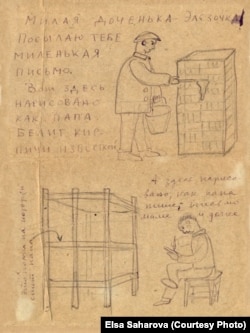 МИЛАЯ ДОЧЕНЬКА ЭЛЬЗОЧКА
ПОСЫЛАЮ ТЕБЕ
МИЛЕНЬКАЯ
ПИСЬМО.
ЗДЕСЬ
НАРИСОВАНО
КАК ПАПА
БЕЛИТ КИР-
ПИЧИ ИЗВЕСТКОЙ
А здесь нарисо-
вано, как папа
пишет письмо
маме и дочке
папа
Courtesy of Elsa Saharova (Courtesy Photo)